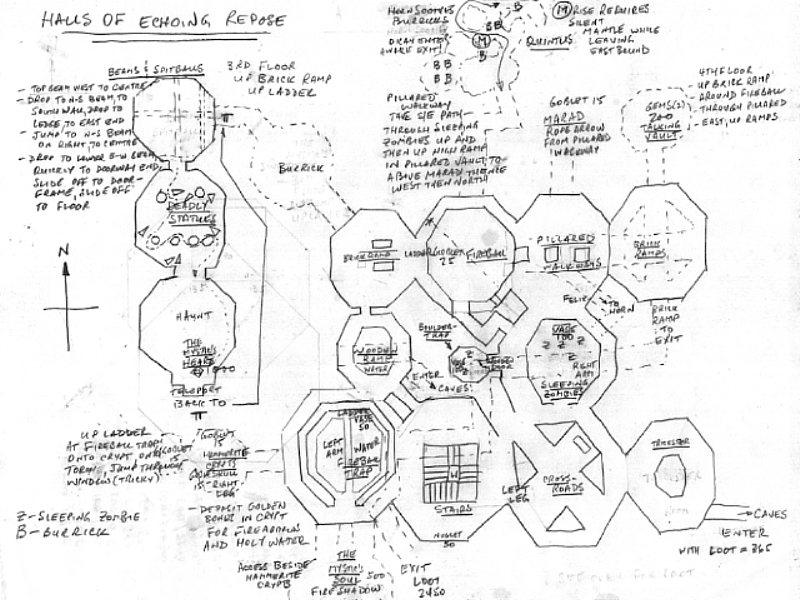 HALLS OF ECHOING REPOSE
HORN SOOTHES
BURRICKS
AWAKE EXIT!
M RISE REQUIRES
SILENT
MANTLE WHILE
LEAVING
EAST BOUND
QUINTUS
B
B B
M
B
B B
B B
BEAMS & SPITBALLS
3RD FLOOR
UP BRICK RAMP
UP LADDER
- TOP BEAM WEST TO CENTRE
- DROP TO N-S BEAM, TO
SOUTH WALL, DROP TO
LEDGE, TO EAST END
- JUMP TO N-S BEAM
ON RIGHT TO CENTRE
- DROP TO LOWER E-W BEAM
QUICKLY TO DOORWAY END,
SLIDE OFF TO DOOR-
FRAME, SLIDE OFF
TO FLOOR
PILLARED
WALKWAY
TAKE S/E PATH-
THROUGH SLEEPING
ZOMBIES UP AND
THEN UP HIGH RAMP
IN PILLARED VAULT, TO
ABOVE MARAD THENCE
WEST THEN NORTH
GOBLET 15
MARAD
ROPE ARROW
FROM PILLARED
WALKWAY
GEMS(2)
200
TALKING
VAULT
4TH FLOOR
- UP BRICK RAMP
- AROUND FIREBALL
- THROUGH PILLARED
- EAST, UP RAMPS
BURRICK
DEADLY
STATUES
N
HAUNT
THE
MYSTIC'S
HEART
1000
TELEPORT
BACK TO
BRICK RAMP
LADDER
GOBLET
25
FIREBALL
PILLARED
WALKWAYS
BRICK
RAMPS
FELIX
TO
HORN
BRICK
RAMP
TO
EXIT
BOULDER
TRAP
WOODEN
RAMP
WATER
ENTER
CAVES
VASE
100
Z
Z Z
Z
RIGHT
ARM
SLEEPING
ZOMBIES
UP LADDER
AT FIREBALL TRAP
ONTO CRYPT, ONTO
TORCH, JUMP THROUGH
WINDOW (TRICKY)
GOBLET
15
HAMMERITE
CRYPTS
IS RIGHT
LEG
- DEPOSIT GOLDEN
BONES IN CRYPT
FOR FIREARROWS
AND HOLY WATER
LADDER
VASE
50
LEFT
ARM
WATER
FIREBALL
TRAP
H
STAIRS
NUGGET
50
LEFT
LEG
CROSS-
ROADS
TRICKSTER
CAVES
ENTER
WITH LOOT = 365
Z - SLEEPING ZOMBIE
B - BURRICK
ACCESS BESIDE
HAMMERITE
CRYPT
THE
MYSTIC'S
SOUL 500
FIRE SHADOW
EXIT
LOOT
2450